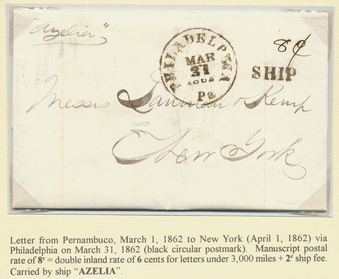 "Azelia"
PHILADELPHIA
MAR
31
1862
Pa
8¢
SHIP
Messrs Lanman & Kemp
New York
Letter from Pernambuco, March 1, 1862 to New York (April 1, 1862) via
Philadelphia on March 31, 1862 (black circular postmark). Manuscript postal
rate of 8ᶜ = double inland rate of 6 cents for letters under 3,000 miles + 2ᶜ ship fee.
Carried by ship "AZELIA".